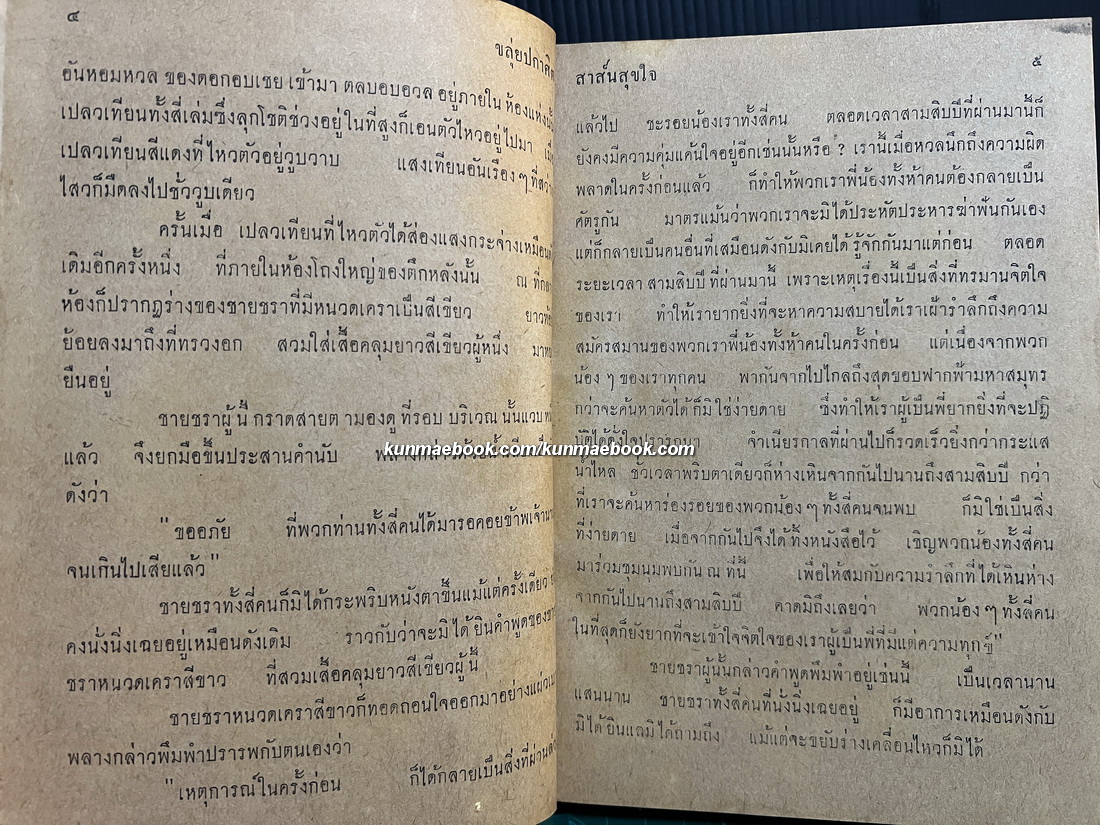 ๔
ขลุ่ยปกาศิต
อันหอมหวล ของดอกอบเชย เข้ามา ตลบอบอวล อยู่ภายใน ห้องแห่งนั้น
เปลวเทียนทั้งสี่เล่มซึ่งลุกโชติช่วงอยู่ในที่สูงก็เอนตัวไหวอยู่ไปมา
เปลวเทียนสีแดงที่ไหวตัวอยู่วูบวาบ แสงเทียนอันเรือง ๆ ที่สว่าง
ไสวก็มืดลงไปชั่ววูบเดียว
ครั้นเมื่อ เปลวเทียนที่ไหวตัวได้ส่องแสงกระจ่างเหมือน
เดิมอีกครั้งหนึ่ง ที่ภายในห้องโถงใหญ่ของตึกหลังนั้น ณ
ห้องก็ปรากฏร่างของชายชราที่มีหนวดเคราเป็นสีเขียว
ย้อยลงมาถึงที่ทรวงอก สวมใส่เสื้อคลุมยาวสีเขียวผู้หนึ่ง
ยืนอยู่
ชายชราผู้นี้ กราดสายต ามองดู ที่รอบ บริเวณ นั้นแวบ
แล้ว จึงยกมือขึ้นประสานคำนับ
ดังว่า
"ขออภัย ที่พวกท่านทั้งสี่คนได้มารอคอยข้าพเจ้า
จนเกินไปเสียแล้ว"
ชายชราทั้งสี่คนก็มิได้กระพริบหนังตาขึ้นแม้แต่ครั้งเดียว
คงนั่งนิ่งเฉยอยู่เหมือนดังเดิม ราวกับว่าจะมิได้ยินคำพูดของ
ชราหนวดเคราสีขาว ที่สวมเสื้อคลุมยาวสีเขียวผู้นี้
ชายชราหนวดเคราสีขาวก็ทอดถอนใจออกมาอย่าง
พลางกล่าวพึมพำปรารพกับตนเองว่า
"เหตุการณ์ในครั้งก่อน ก็ได้กลายเป็นสิ่งที่ผ่าน
สาส์นสุขใจ
๕
แล้วไป ชะรอยน้องเราทั้งสี่คน ตลอดเวลาสามสิบปีที่ผ่านมานี้ก็
ยังคงมีความคุ่มแค้นใจอยู่อีกเช่นนั้นหรือ ? เรานี้เมื่อหวลนึกถึงความผิด
พลาดในครั้งก่อนแล้ว ก็ทำให้พวกเราพี่น้องทั้งห้าคนต้องกลายเป็น
ศัตรูกัน มาตรแม้นว่าพวกเราจะมิได้ประหัตประหารฆ่าฟันกันเอง
แต่ก็กลายเป็นคนอื่นที่เสมือนดังกับมิเคยได้รู้จักกันมาแต่ก่อน ตลอด
ระยะเวลา สามสิบปี ที่ผ่านมานี้ เพราะเหตุเรื่องนี้เป็นสิ่งที่ทรมานจิตใจ
ของเรา ทำให้เรายากยิ่งที่จะหาความสบายได้เราเฝ้ารำลึกถึงความ
สมัครสมานของพวกเราพี่น้องทั้งห้าคนในครั้งก่อน แต่เนื่องจากพวก
น้อง ๆ ของเราทุกคน พากันจากไปไกลถึงสุดขอบฟากฟ้ามหาสมุทร
กว่าจะค้นหาตัวได้ ก็มิใช่ง่ายดาย ซึ่งทำให้เราผู้เป็นพี่ยากยิ่งที่จะปฏิ
บัติได้ดั่งใจปรารถนา จำเนียรกาลที่ผ่านไปก็รวดเร็วยิ่งกว่ากระแส
kunmaebook.com/kunmaebook.com
น้ำไหล ชั่วเวลาพริบตาเดียวก็ห่างเหินจากกันไปนานถึงสามสิบปี กว่า
ที่เราจะค้นหาร่องรอยของพวกน้อง ๆ ทั้งสี่คนจนพบ ก็มิใช่เป็นสิ่ง
ที่ง่ายดาย เมื่อจากกันไปจึงได้ทิ้งหนังสือไว้ เชิญพวกน้องทั้งสี่คน
มาร่วมชุมนุมพบกัน ณ ที่นี้ เพื่อให้สมกับความรำลึกที่ได้เหินห่าง
จากกันไปนานถึงสามสิบปี คาดมิถึงเลยว่า พวกน้อง ๆ ทั้งสี่คน
ในที่สุดก็ยังยากที่จะเข้าใจจิตใจของเราผู้เป็นพี่ที่มีแต่ความทุกข์"
ชายชราผู้นั้นกล่าวคำพูดพึมพำอยู่เช่นนี้ เป็นเวลานาน
แสนนาน ชายชราทั้งสี่คนที่นั่งนิ่งเฉยอยู่ ก็มีอาการเหมือนดังกับ
มิได้ยินแลมิได้ถามถึง แม้แต่จะขยับร่างเคลื่อนไหวก็มิได้